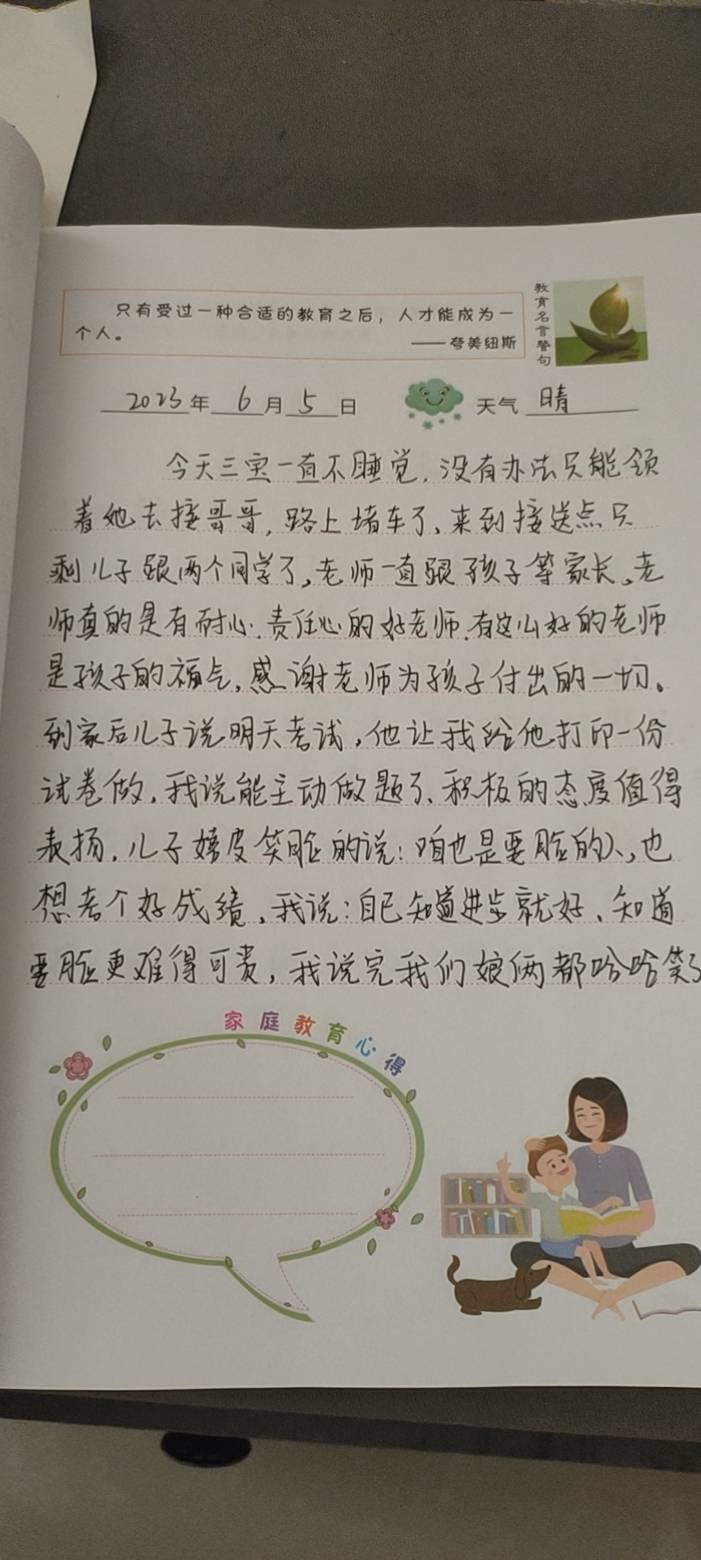 只有受过一种合适的教育之后，人才能成为一
个人。
——夸美纽斯
教育名言警句
2023年6月5日 天气 晴
今天三宝一直不睡觉，没有办法只能领
着她去接哥哥，路上堵车了、来到接送点只
剩儿子跟两个同学了，老师一直跟孩子等家长、老
师真的是有耐心、责任心的好老师、有这么好的老师
是孩子的福气，感谢老师为孩子付出的一切。
到家后儿子说明天考试，他让我给他打印一份
试卷做，我说能主动做题了、积极的态度值得
表扬，儿子嬉皮笑脸的说：咱也是要脸的人，也
想考个好成绩，我说：自己知道进步就好、知道
要脸更难得可贵，我说完我们娘俩都哈哈笑了
家庭教育心得